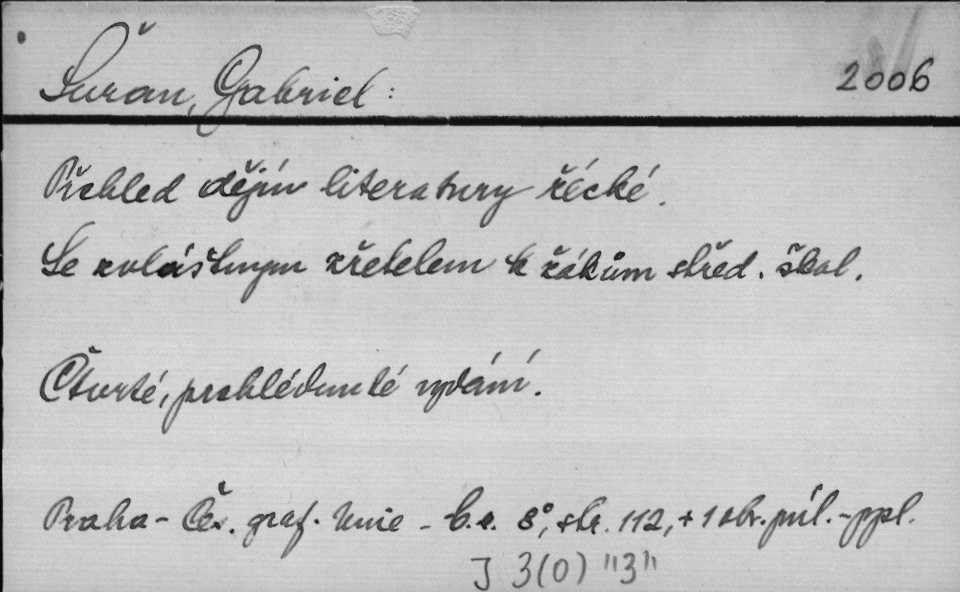 Šuran, Gabriel:
2006
Přehled dějin literatury řécké.
Se zvláštnym zřetelem k žákům střed. škol.
Čtvrté, prohlédnuté vydání.
Praha - Čes. graf. Unie - b.r. 8°, str. 112, + 1 obr. příl. - ppl.
J 3(0) "3"